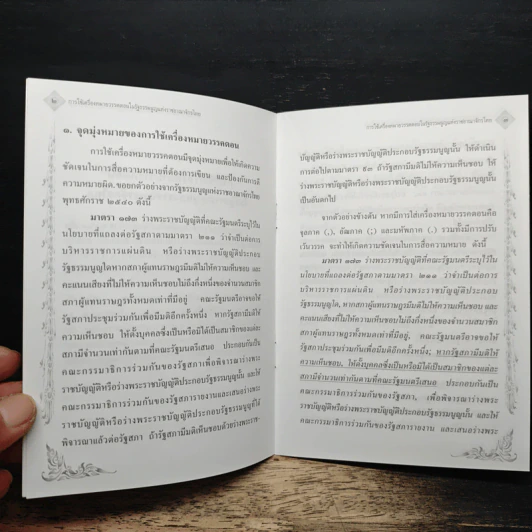 ๒
การใช้เครื่องหมายวรรคตอนในรัฐธรรมนูญแห่งราชอาณาจักรไทย
๑. จุดมุ่งหมายของการใช้เครื่องหมายวรรคตอน
การใช้เครื่องหมายวรรคตอนมีจุดมุ่งหมายเพื่อให้เกิดความ
ชัดเจนในการสื่อความหมายที่ต้องการเขียน และป้องกันการตี
ความหมายผิด, ขอยกตัวอย่างจากรัฐธรรมนูญแห่งราชอาณาจักรไทย
พุทธศักราช ๒๕๔๐ ดังนี้
มาตรา ๑๗๓ ร่างพระราชบัญญัติที่คณะรัฐมนตรีระบุไว้ใน
นโยบายที่แถลงต่อรัฐสภาตามมาตรา ๒๑๑ ว่าจำเป็นต่อการ
บริหารราชการแผ่นดิน หรือร่างพระราชบัญญัติประกอบ
รัฐธรรมนูญใดหากสภาผู้แทนราษฎรมีมติไม่ให้ความเห็นชอบ และ
คะแนนเสียงที่ไม่ให้ความเห็นชอบไม่ถึงกึ่งหนึ่งของจำนวนสมาชิก
สภาผู้แทนราษฎรทั้งหมดเท่าที่มีอยู่ คณะรัฐมนตรีอาจขอให้
รัฐสภาประชุมร่วมกันเพื่อมีมติอีกครั้งหนึ่ง หากรัฐสภามีมติให้
ความเห็นชอบ ให้ตั้งบุคคลซึ่งเป็นหรือมิได้เป็นสมาชิกของแต่ละ
สภามีจำนวนเท่ากันตามที่คณะรัฐมนตรีเสนอ ประกอบกันเป็น
คณะกรรมาธิการร่วมกันของรัฐสภาเพื่อพิจารณาร่างพระ
ราชบัญญัติหรือร่างพระราชบัญญัติประกอบรัฐธรรมนูญนั้น และให้
คณะกรรมาธิการร่วมกันของรัฐสภารายงานและเสนอร่างพระ
ราชบัญญัติหรือร่างพระราชบัญญัติประกอบรัฐธรรมนูญที่ได้
พิจารณาแล้วต่อรัฐสภา ถ้ารัฐสภามีมติเห็นชอบด้วยร่างพระราช-
การใช้เครื่องหมายวรรคตอนในรัฐธรรมนูญแห่งราชอาณาจักรไทย
๓
บัญญัติหรือร่างพระราชบัญญัติประกอบรัฐธรรมนูญนั้น ให้ดำเนิน
การต่อไปตามมาตรา ๙๓ ถ้ารัฐสภามีมติไม่ให้ความเห็นชอบ ให้
ร่างพระราชบัญญัติหรือร่างพระราชบัญญัติประกอบรัฐธรรมนูญนั้น
เป็นอันตกไป
จากตัวอย่างข้างต้น หากมีการใส่เครื่องหมายวรรคตอนคือ
จุลภาค (,), อัฒภาค (;) และมหัพภาค (.) รวมทั้งมีการปรับ
เว้นวรรค จะทำให้เกิดความชัดเจนในการสื่อความหมาย ดังนี้
มาตรา ๑๗๓ ร่างพระราชบัญญัติที่คณะรัฐมนตรีระบุไว้ใน
นโยบายที่แถลงต่อรัฐสภาตามมาตรา ๒๑๑ ว่าจำเป็นต่อการ
บริหารราชการแผ่นดิน หรือร่างพระราชบัญญัติประกอบ
รัฐธรรมนูญใด, หากสภาผู้แทนราษฎรมีมติไม่ให้ความเห็นชอบ และ
คะแนนเสียงที่ไม่ให้ความเห็นชอบไม่ถึงกึ่งหนึ่งของจำนวนสมาชิก
สภาผู้แทนราษฎรทั้งหมดเท่าที่มีอยู่, คณะรัฐมนตรีอาจขอให้
รัฐสภาประชุมร่วมกันเพื่อมีมติอีกครั้งหนึ่ง; หากรัฐสภามีมติให้
ความเห็นชอบ, ให้ตั้งบุคคลซึ่งเป็นหรือมิได้เป็นสมาชิกของแต่ละ
สภามีจำนวนเท่ากันตามที่คณะรัฐมนตรีเสนอ ประกอบกันเป็น
คณะกรรมาธิการร่วมกันของรัฐสภา, เพื่อพิจารณาร่างพระ
ราชบัญญัติหรือร่างพระราชบัญญัติประกอบรัฐธรรมนูญนั้น, และให้
คณะกรรมาธิการร่วมกันของรัฐสภารายงาน และเสนอร่างพระ